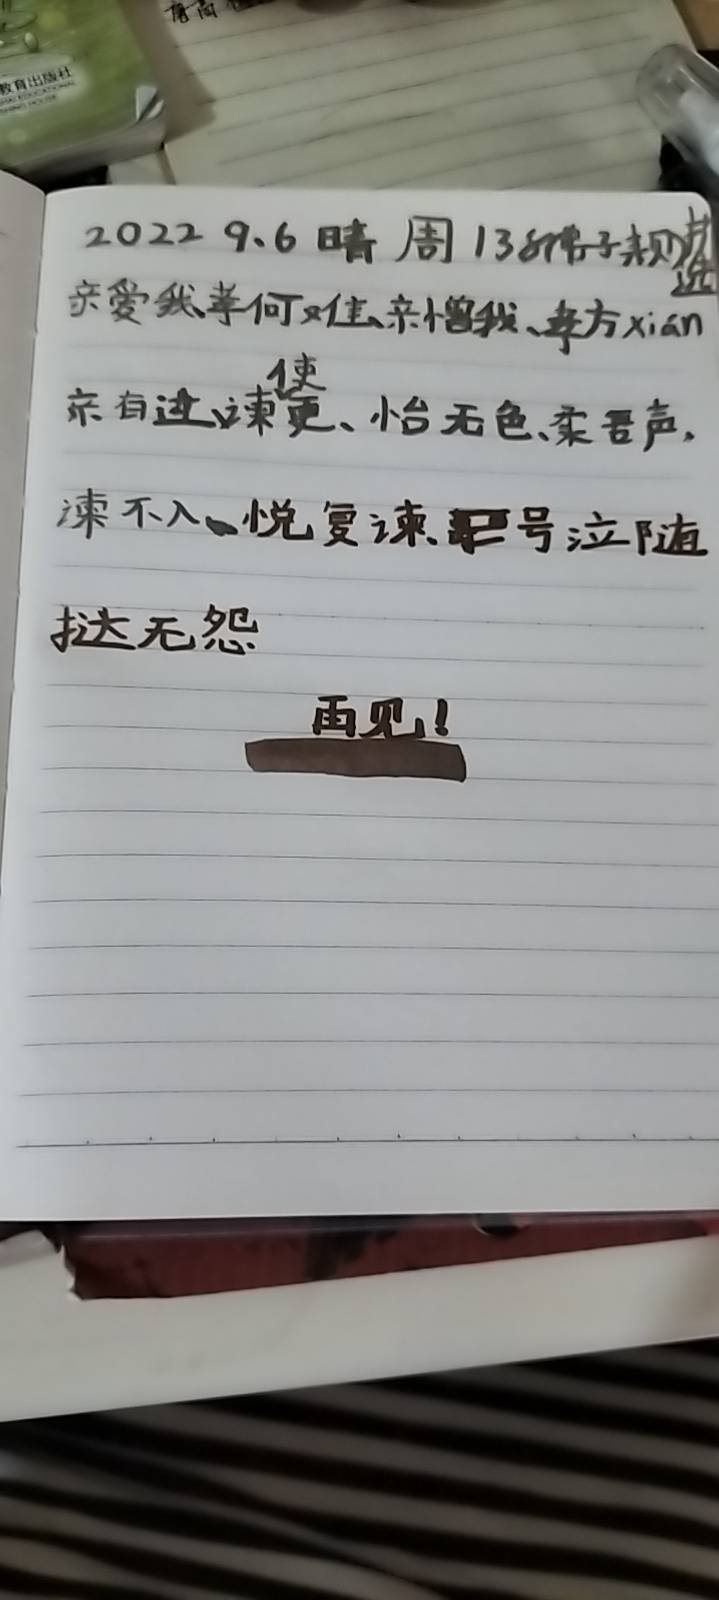 唐
教育出版社
2022 9.6 晴 周 138 弟子规 选
亲爱我、孝何难、亲憎我、孝方xián
使
亲有过、谏更、怡无色、柔吾声,
谏不入、悦复谏、号泣随
挞无怨
再见!